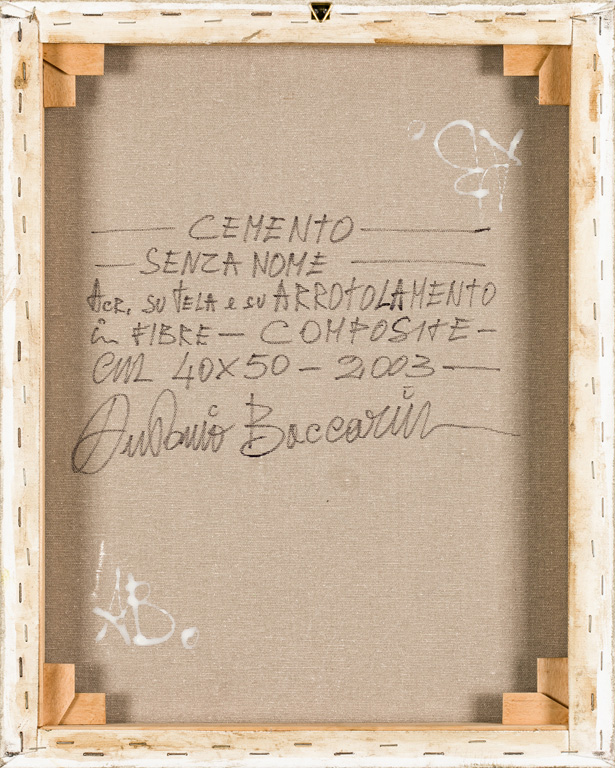 CEMENTO
SENZA NOME
Acr. su Tela e su ARROTOLAMENTO
in FIBRE — COMPOSITE —
cm 40x50 — 2003 —
Antonio Boccarin
AB.